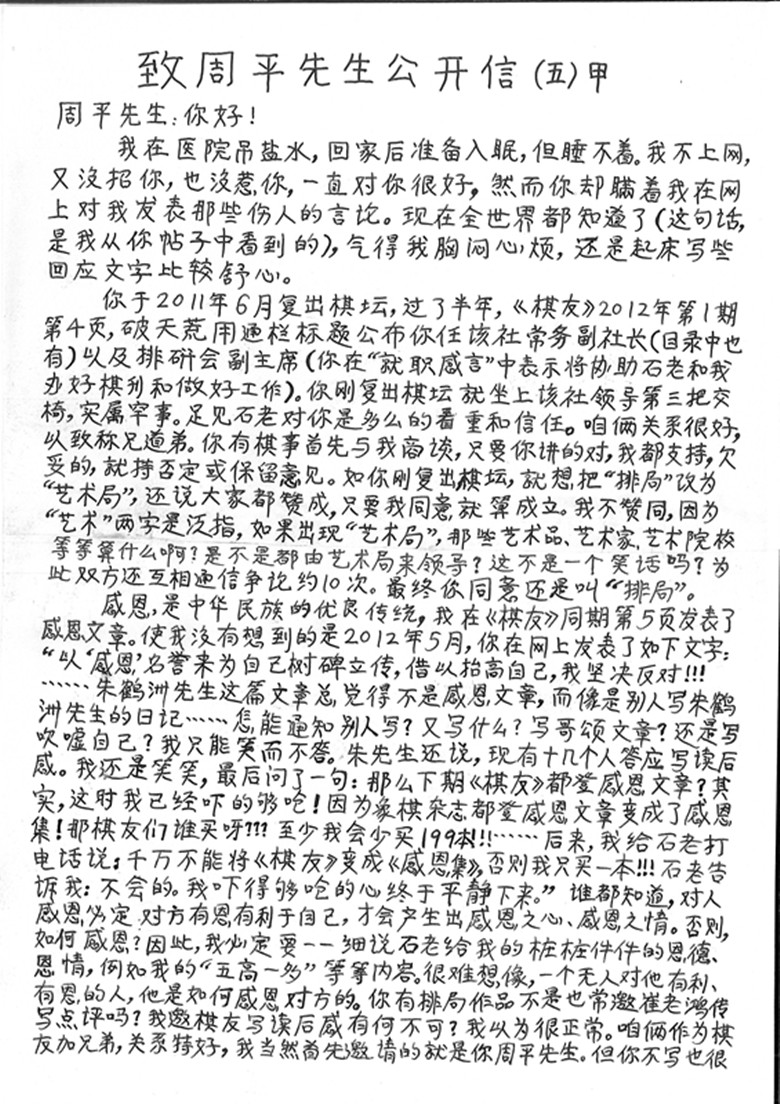 致周平先生公开信(五)甲
周平先生:你好!
我在医院吊盐水,回家后准备入眠,但睡不着。我不上网,
又没招你,也没惹你,一直对你很好,然而你却瞒着我在网
上对我发表那些伤人的言论。现在全世界都知道了(这句话,
是我从你帖子中看到的),气得我胸闷心烦,还是起床写些
回应文字比较舒心。
你于2011年6月复出棋坛,过了半年,《棋友》2012年第1期
第4页,破天荒用通栏标题公布你任该社常务副社长(目录中也
有)以及排研会副主席(你在“就职感言”中表示将协助石老和我
办好棋刊和做好工作)。你刚复出棋坛就坐上该社领导第三把交
椅,实属罕事。足见石老对你是多么的看重和信任。咱俩关系很好,
以致称兄道弟。你有棋事首先与我商谈,只要你讲的对,我都支持,欠
妥的,就持否定或保留意见。如你刚复出棋坛,就想把“排局”改为
“艺术局”,还说大家都赞成,只要我同意就算成立。我不赞同,因为
“艺术”两字是泛指,如果出现“艺术局”,那些艺术品、艺术家、艺术院校
等等算什么啊?是不是都由艺术局来领导?这不是一个笑话吗?为
此双方还互相通信争论约10次。最终你同意还是叫“排局”。
感恩,是中华民族的优良传统,我在《棋友》同期第5页发表了
感恩文章。使我没有想到的是2012年5月,你在网上发表了如下文字:
“以‘感恩’名誉来为自己树碑立传,借以抬高自己,我坚决反对!!!
……朱鹤洲先生这篇文章总觉得不是感恩文章,而像是别人写朱鹤
洲先生的日记……怎能通知别人写?又写什么?写哥颂文章?还是写
吹嘘自己?我只能笑而不答。朱先生还说,现有十几个人答应写读后
感。我还是笑笑,最后问了一句:那么下期《棋友》都登感恩文章?其
实,这时我已经吓的够呛!因为象棋杂志都登感恩文章变成了感恩
集!那棋友们谁买呀???至少我会少买199本!!!……后来,我给石老打
电话说:千万不能将《棋友》变成《感恩集》,否则我只买一本!!!石老告
诉我:不会的。我吓得够呛的心终于平静下来。”谁都知道,对人
感恩必定对方有恩有利于自己,才会产生出感恩之心、感恩之情。否则,
如何感恩?因此,我必定要一一细说石老给我的桩桩件件的恩德、
恩情,例如我的“五高一多”等等内容。很难想像,一个无人对他有利、
有恩的人,他是如何感恩对方的。你有排局作品不是也常邀崔老鸿传
写点评吗?我邀棋友写读后感有何不可?我以为很正常。咱俩作为棋
友加兄弟,关系特好,我当然首先邀请的就是你周平先生。但你不写也很